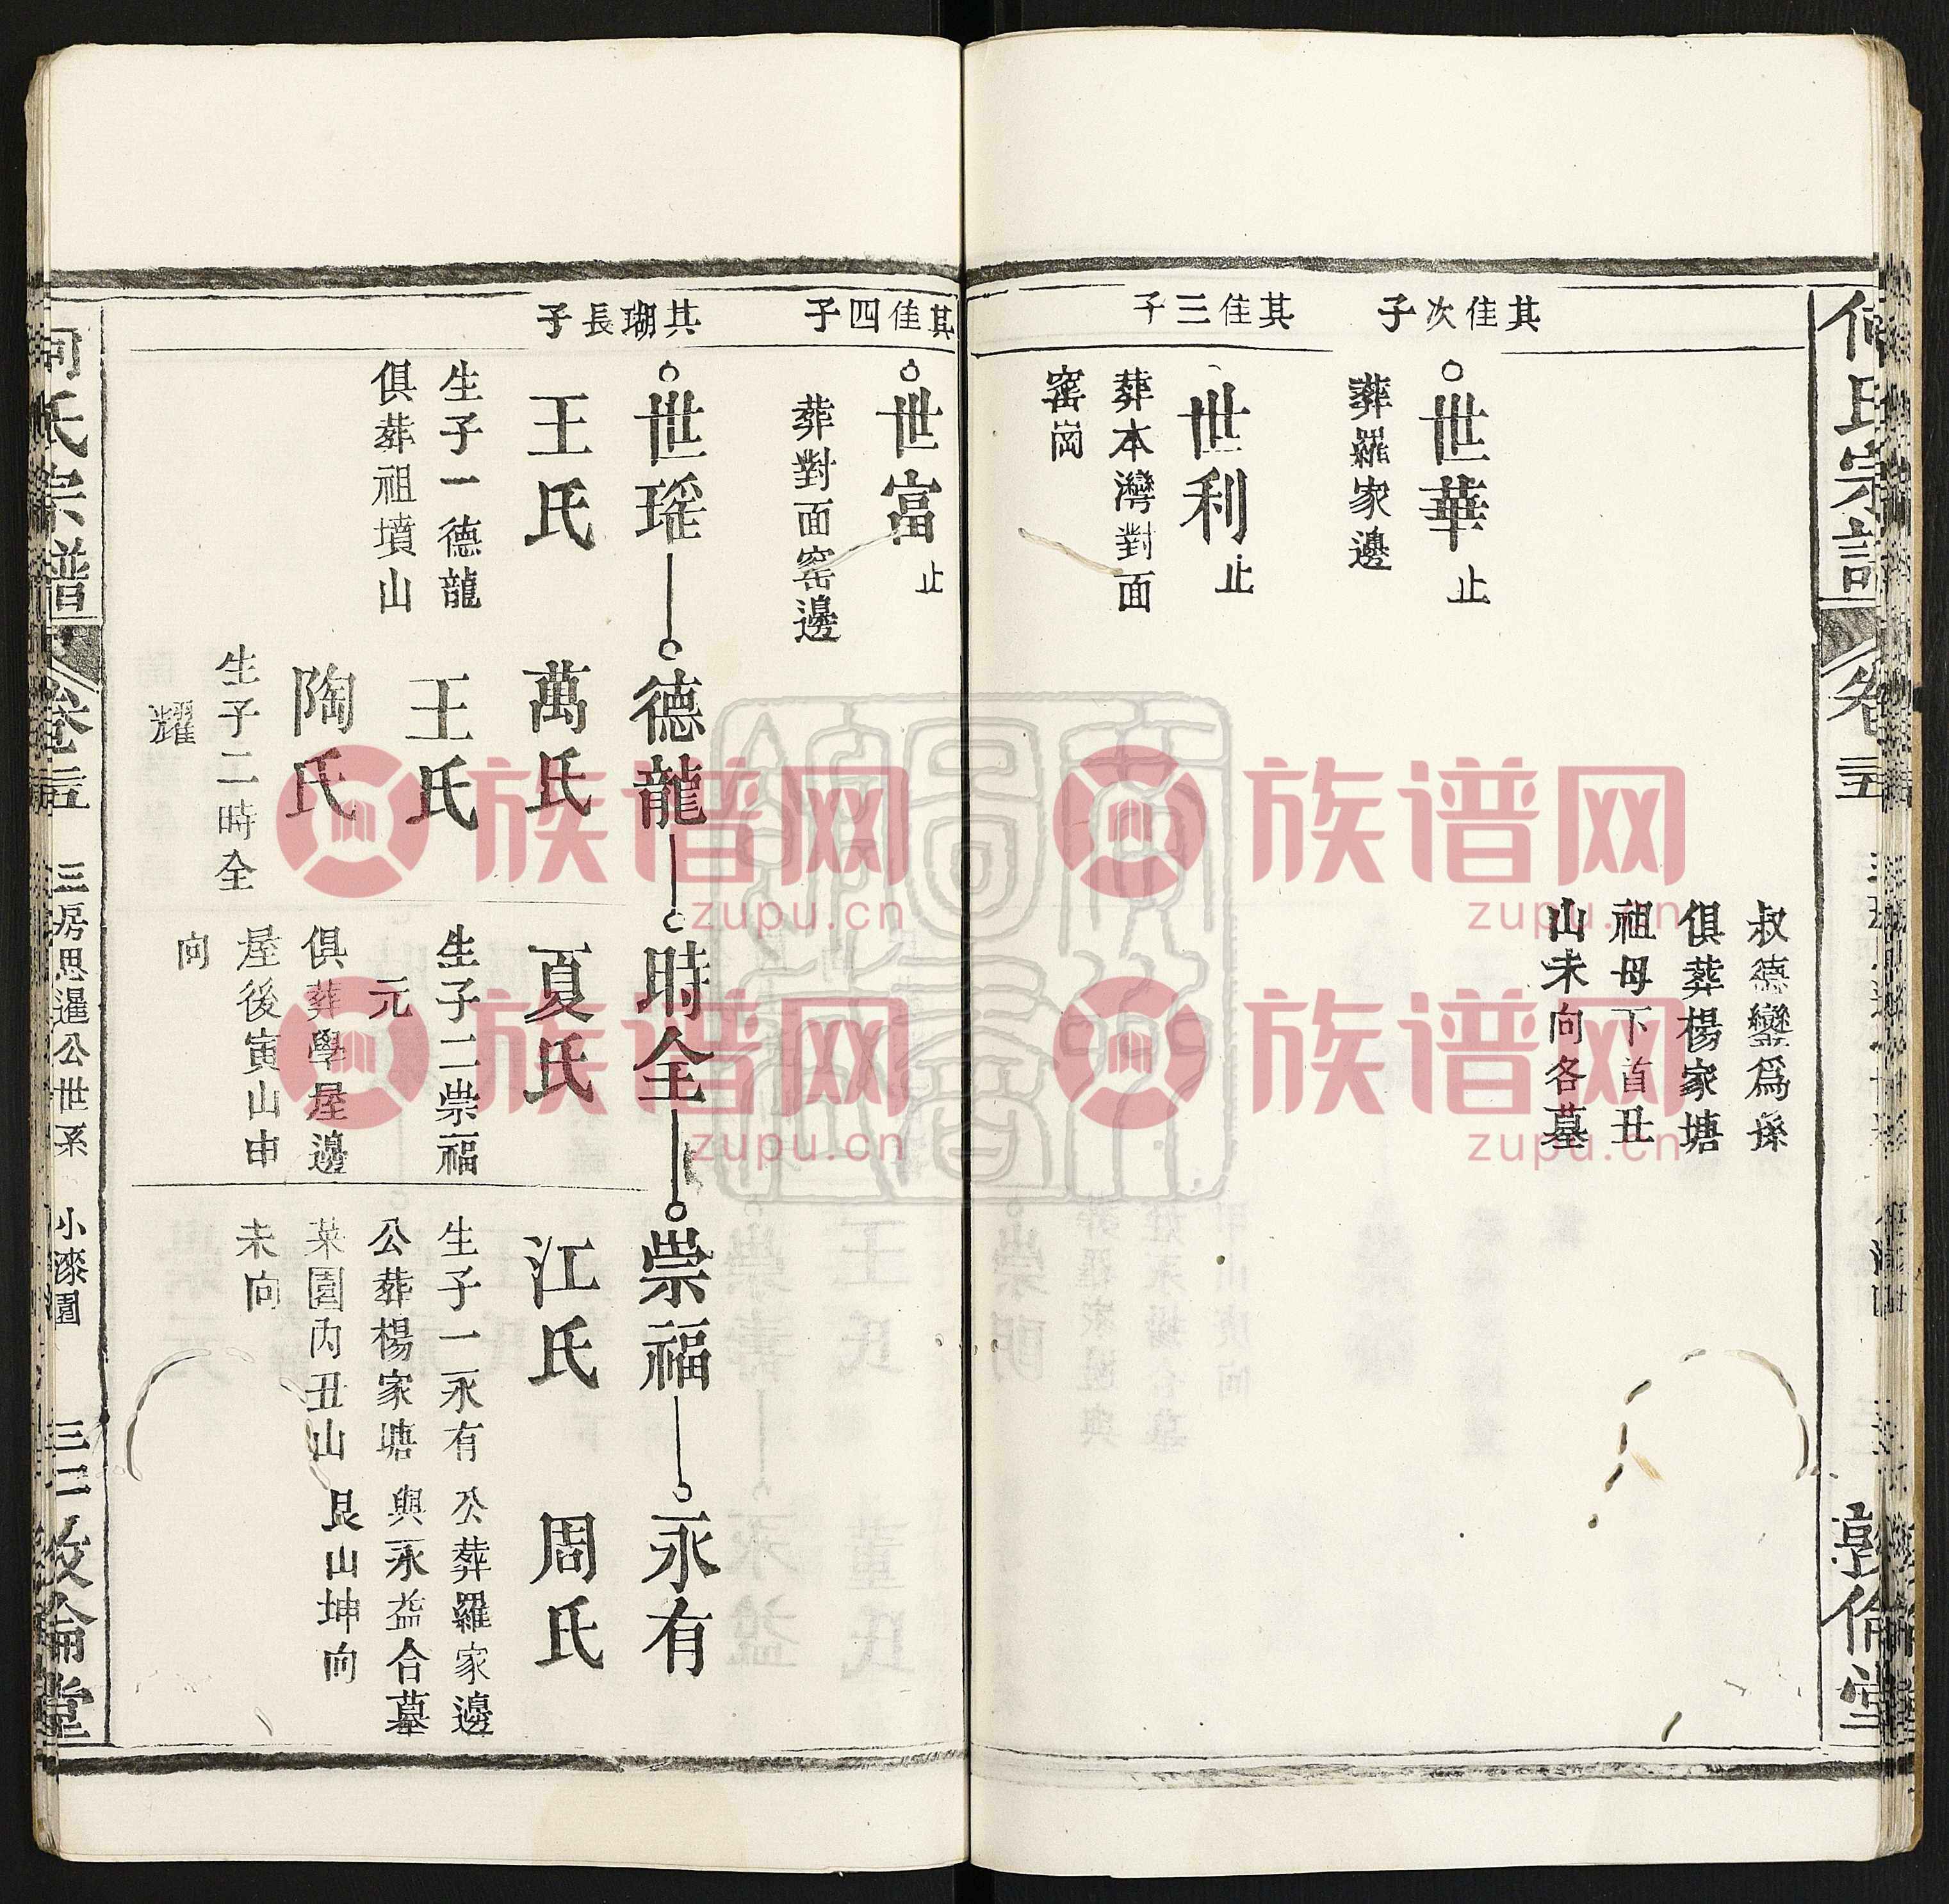 何氏宗譜
卷二五
敦倫堂
叔德鑾爲孫
俱葬楊家塘
祖母下首丑
山未向各墓
其佳次子
世華止
葬羅家邊
其佳三子
世利止
葬本灣對面
窰崗
其佳四子
世富止
葬對面窰邊
其瑚長子
世瑤
王氏
生子一德龍
俱葬祖墳山
德龍
萬氏
王氏
陶氏
生子二時全
耀
時全
夏氏
生子二崇福
元
俱葬學屋邊
屋後寅山申
向
崇福
江氏
生子一永有
公葬楊家塘
菜園內丑山
未向
永有
周氏
公葬羅家邊
與永益合墓
艮山坤向
何氏宗譜
卷二五
三房思暹公世系
小漆園
三二
敦倫堂
族谱网
zupu.cn
族谱网
zupu.cn
族谱网
zupu.cn
族谱网
zupu.cn